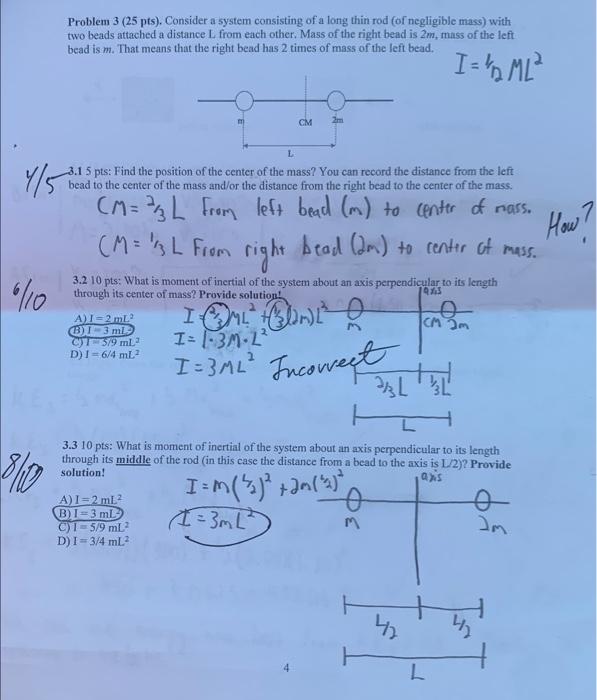 Problem 3 (25 pts). Consider a system consisting of a long thin rod (of negligible mass) with
two beads attached a distance L from each other. Mass of the right bead is 2m, mass of the left
bead is m. That means that the right bead has 2 times of mass of the left bead.
I = 1/12 ML²
m CM 2m
L
4/5
3.1 5 pts: Find the position of the center of the mass? You can record the distance from the left
bead to the center of the mass and/or the distance from the right bead to the center of the mass.
CM = 2/3 L From left bead (m) to center of mass.
How?
CM = 1/3 L From right bead (2m) to center of mass.
6/10
3.2 10 pts: What is moment of inertial of the system about an axis perpendicular to its length
through its center of mass? Provide solution!
axis
A) I = 2 mL²
B) I = 3 mL²
C) I = 5/9 mL²
D) I = 6/4 mL²
I = (2/3)ML² + (1/3)(2m)L²
I = 1·3M·L²
I = 3ML² Incorrect
m CM 2m
2/3L 1/3L
L
3.3 10 pts: What is moment of inertial of the system about an axis perpendicular to its length
through its middle of the rod (in this case the distance from a bead to the axis is L/2)? Provide
solution!
8/10
axis
A) I = 2 mL²
B) I = 3 mL²
C) I = 5/9 mL²
D) I = 3/4 mL²
I = m(L/2)² + 2m(L/2)²
I = 3mL²
m 2m
L/2 L/2
L
4